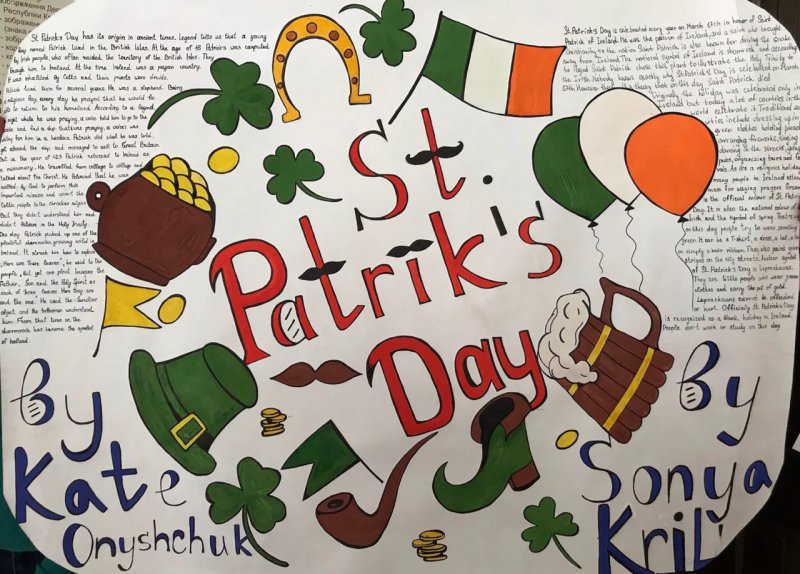 St. Patrick's Day has its origin in ancient times. Legend tells us that a young
boy named Patrick lived in the British Isles. At the age of 16 Patrick was
by Irish people who often raided the territory of the British Isles. They
him to Ireland. At the time Ireland was a pagan country.
for several years. He was a shepherd. Being
religious boy every day he prayed that he would be
to return to his homeland. According to a legend
night while he was praying, a voice told him to go to the
and find a ship that was
Patrick did what he was told
the ship and managed to sail to Great Britain
But in the year of 423 Patrick returned to Ireland as
a missionary. He travelled from village to village and
talked about the Christ. He believed that he was
called by God to perform this
important mission and convert the
Celtic people to the christian religion
But they didn't understand him and
didn't believe in the Holy Trinity
One day Patrick picked up one of the
plentiful shamrocks growing wild in
Ireland. It struck him how to explain
"Here are three leaves", he said to the
people, "But yet one plant. Imagine the
Father, Son and the Holy Spirit as
each of these leaves. How they are
and the one". He used the familiar
object, and the folkmen understood
him. From that time on the
shamrock has become the symbol
of Ireland.
St.
Patrik's
Day
St. Patrick's Day is celebrated every year on March 17th in honor of Saint
Patrick of Ireland. He was the patron of Ireland, and a saint who brought
Christianity to the nation. Saint Patrick is also known for driving the snakes
away from Ireland. The national symbol of Ireland is shamrock, and according
to legend Saint Patrick chose this plant to illustrate the Holy Trinity to
the Irish. Nobody knows exactly why St. Patrick's Day is celebrated on March
17th. However there is a theory that on this day Saint Patrick died
Originally the holiday was celebrated only in
Ireland but today a lot of countries in the
world celebrate it. Traditional
include dressing up in
green clothes, holding parades
arranging fireworks, singing
dancing in the streets, going
pubs, organizing fairs and
As it's a religious holiday
many people in Ireland attend
mass for saying prayers. Green
is the official colour of St. Patrick's
Day. It is also the national colour of
and the symbol of spring. That's why
on this day people try to wear something
green. It can be a T-shirt, a dress, a hat or
simply a hair ribbon. They also paint green
stripes on the city streets. Another symbol
of St. Patrick's Day is Leprechauns.
They are little people who wear green
clothes and carry the pot of gold.
Leprechauns cannot be offended
or hurt. Officially St. Patrick's Day
is recognized as a Bank holiday in Ireland
People don't work or study on this day.
By
Kate
Onyshchuk
By
Sonya
Kril'